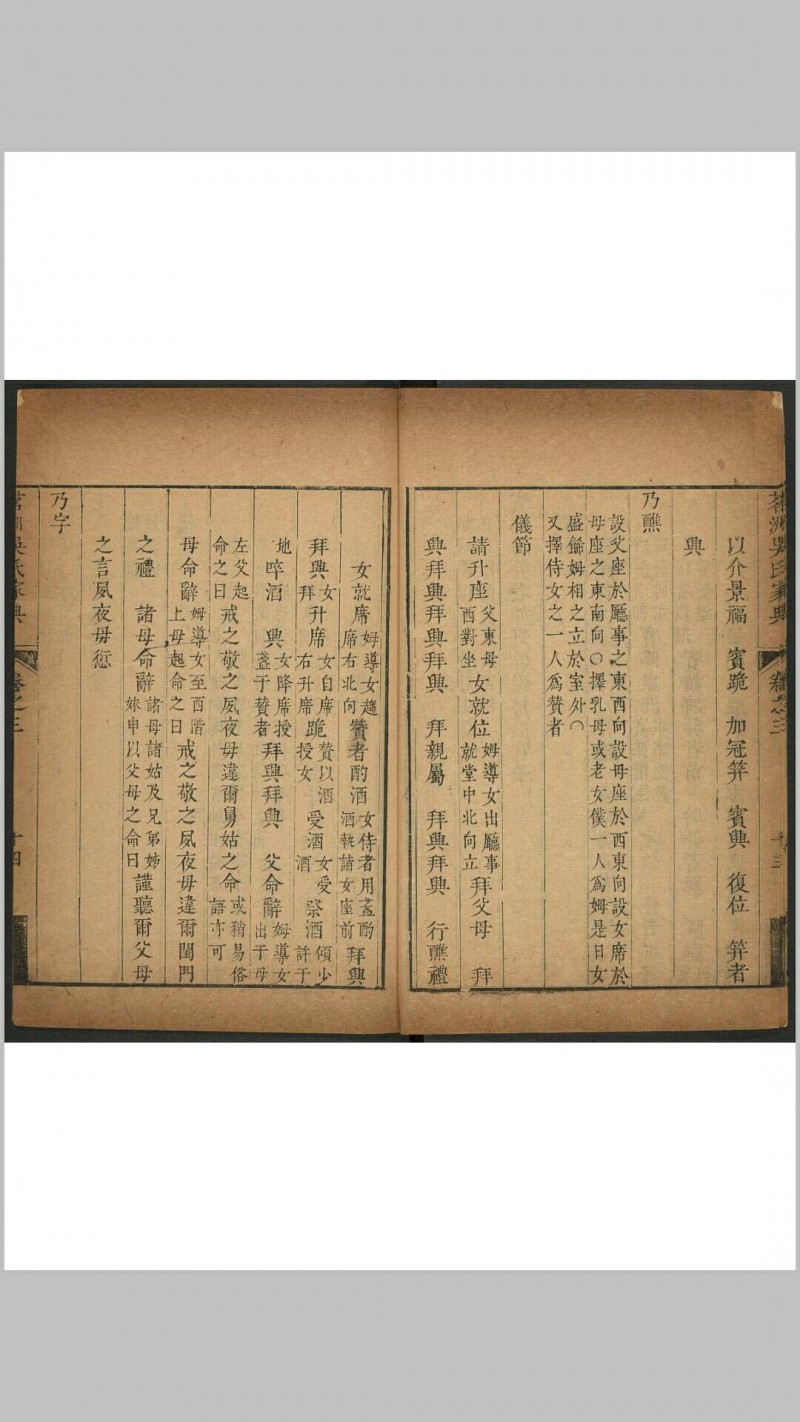 茗洲吳氏家典 卷之三 十三
以介景福 賓跪 加冠筓 賓興 復位 筓者
興
乃醮
設父座於廳事之東西向設母座於西東向設女席於
母座之東南向○擇乳母或老女僕一人爲姆是日女
盛餙姆相之立於室外○
又擇侍女之一人爲贊者
儀節
請升座 父東母西對坐 女就位 姆導女出廳事就堂中北向立 拜父母 拜
興拜興拜興拜興 拜親屬 拜興拜興 行醮禮
女就席 姆導女趨席右北向 贊者酌酒 女侍者用盞酌酒執詣女座前 拜興
拜興 女拜 升席 女自席右升席 跪 贊以酒授女 受酒 女受酒 祭酒 傾少許于
地 啐酒 興 女降席授盞于贊者 拜興拜興 父命辭 姆導女出于母
左父起命之曰 戒之敬之夙夜毋違爾舅姑之命 或稍易俗語亦可
母命辭 姆導女至西階上母起命之曰 戒之敬之夙夜毋違爾閨門
之禮 諸母命辭 諸母諸姑及兄弟姊妹申以父母之命曰 謹聽爾父母
之言夙夜毋愆
乃字
茗洲吳氏家典 卷之三 十四